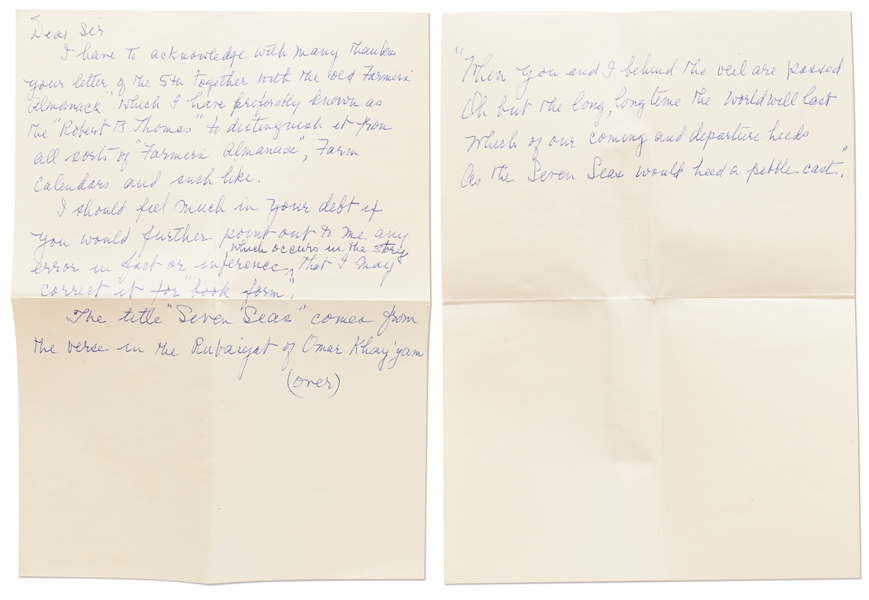 Dear Sir
I have to acknowledge with many thanks
your letter, of the 5th together with the old Farmers'
Almanack" which I have preforably known as
the "Robert B Thomas" to distinguish it from
all sorts of "Farmers' Almanacs", Farm
Calendars and such like.
I should feel much in your debt if
you would further point out to me any
which occurs in the story
error in fact or inference ^ that I may
correct it for "book form".
The title "Seven Seas" comes from
the verse in the Rubaiyat of Omar Khay'yam
(over)
"When you and I behind the veil are passed
Oh but the long, long time the world will last
Which of our coming and departure heeds
As the Seven Seas would heed a pebble cast."